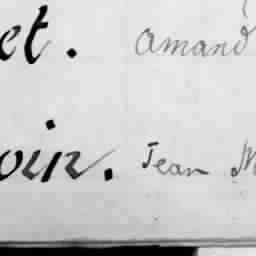 et. amand
oin. Jean M